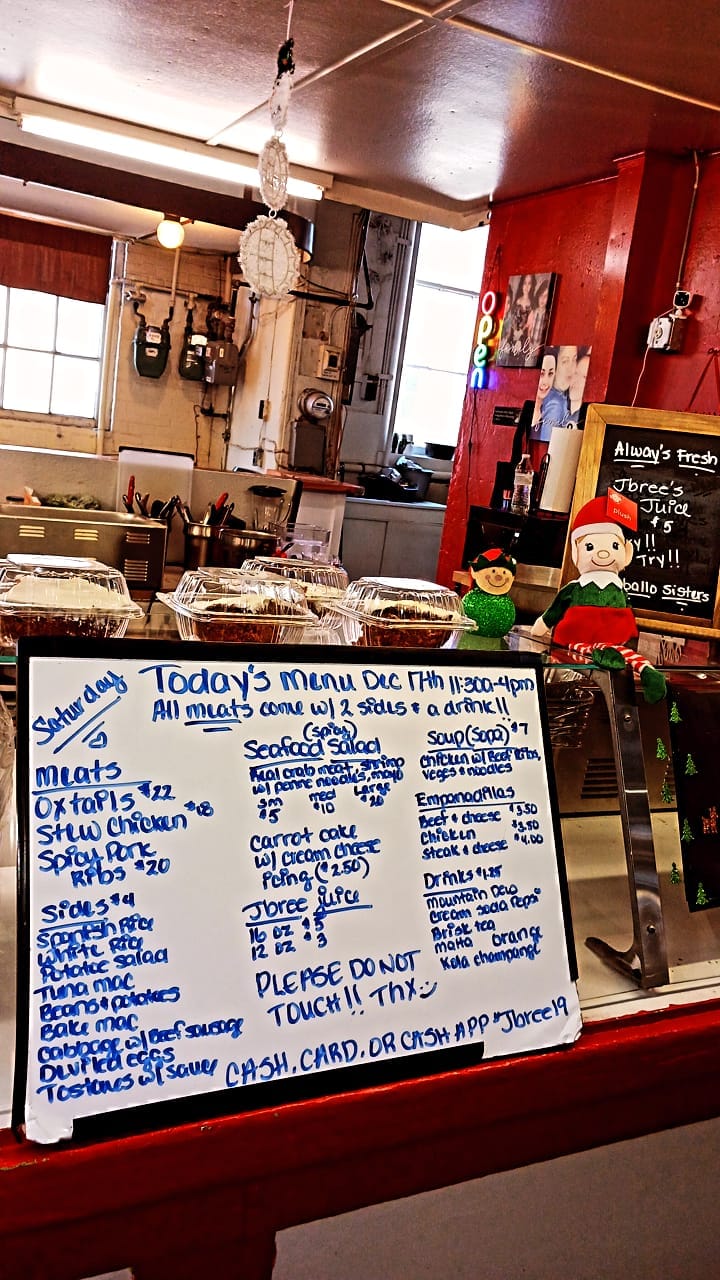 Open
family
Alway's Fresh
Jbree's
Juice
$5
Try!!
Try!!
ballo Sisters
plush
Saturday
Today's Menu Dec 17th 11:30a-4pm
All meats come w/ 2 sides & a drink!!
Meats
Oxtails $22
Stew Chicken $18
Spicy Pork
Ribs $20
Sides $4
Spanish Rice
White Rice
Potatoe Salad
Tuna mac
Beans & potatoes
Bake mac
Cabbage w/ Beef sausage
Deviled eggs
Tostones w/ sauce
(spicy)
Seafood Salad
Real crab meat, shrimp
w/ penne noodles, mayo
sm med Large
$5 $10 $20
Carrot cake
w/ cream cheese
icing ($2.50)
Jbree juice
16 oz $5
12 oz $3
PLEASE DO NOT
TOUCH!! Thx
Soup (Sopa) $7
Chicken w/ Beef Ribs,
veges & noodles
Empanadillas
Beef & cheese $3.50
Chicken $3.50
Steak & cheese $4.00
Drinks $1.25
Mountain Dew
Cream soda Pepsi
Brisk tea
Malta Orange
Kola champange
CASH, CARD, OR CASH APP $Jbree19